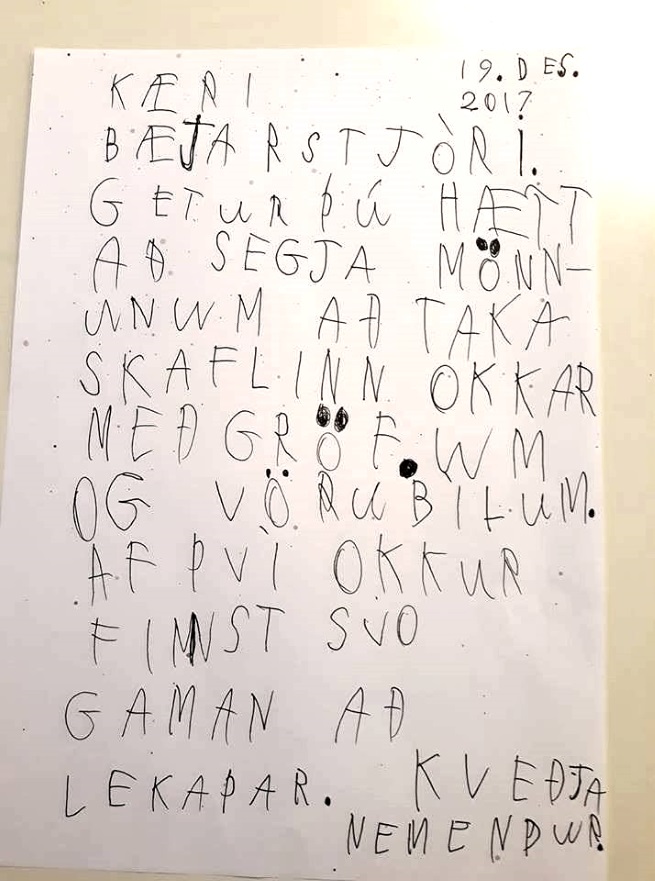 19. DES.
KÆRI 2017
BÆJARSTJÒRI.
GETUR ÞÚ HÆTT
AÐ SEGJA MÖNN-
UNUM AÐ TAKA
SKAFLINN OKKAR
MEÐ GRÖF.UM
OG VÖRUBILUM.
AF ÞVÌ OKKUR
FINNST SVO
GAMAN AÐ
LEKAÞAR. KVEÐJA
NEMENDUR.